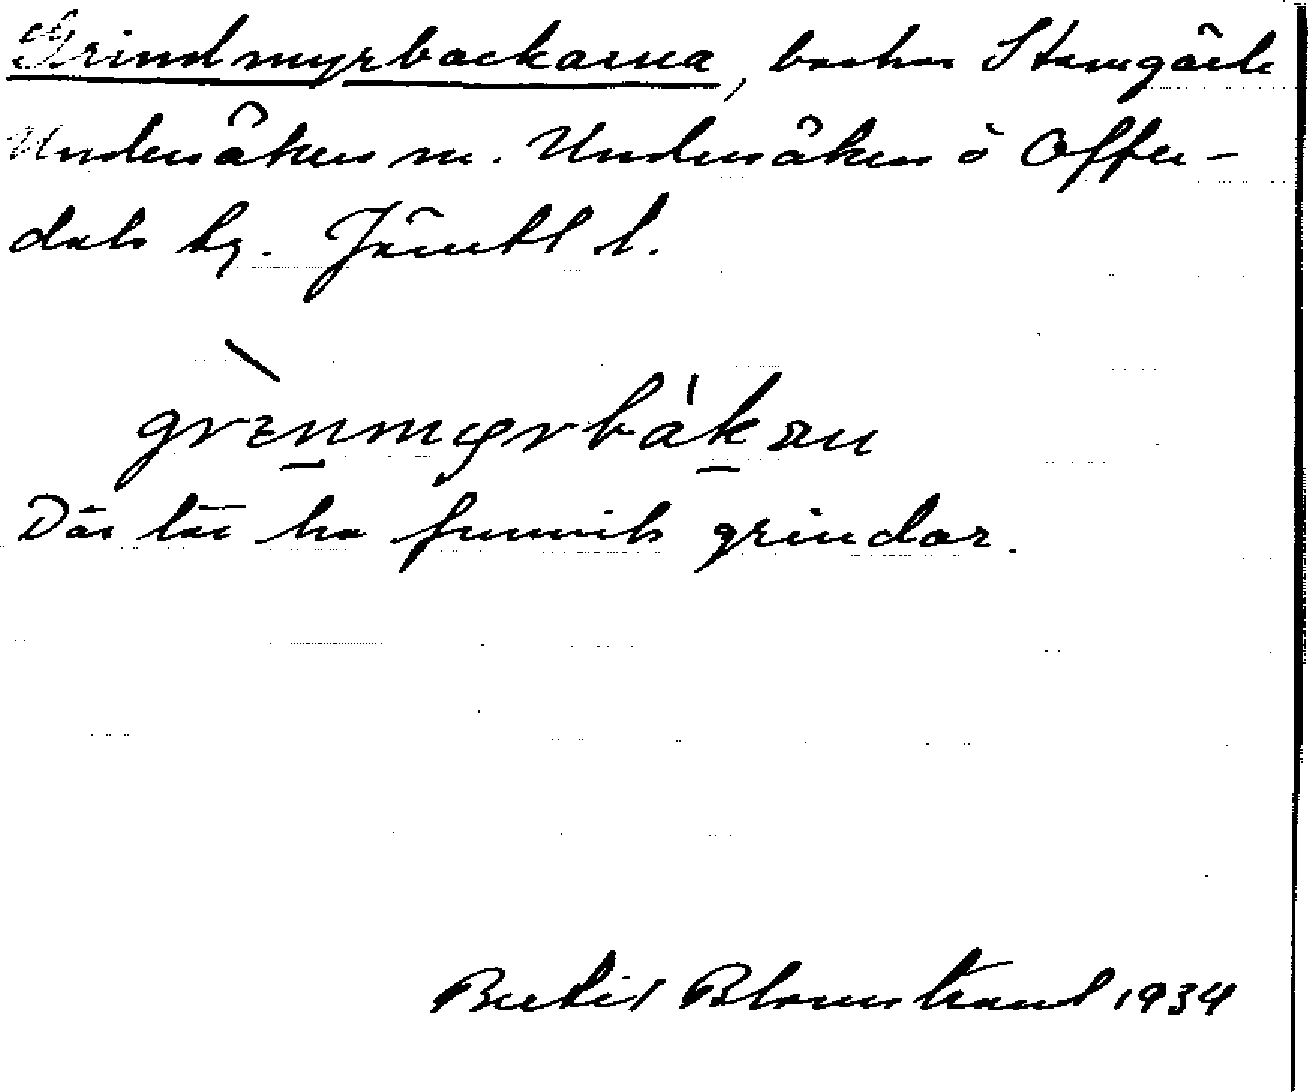 Grindmyrbackarna, backar Stamgärde
Undersåkers sn. Undersåkers o Offer-
dals tg. Jämtl l.
grɛ̀nmyrbàkan
Där lär ha funnits grindar.
Bertil Blomstrand 1934